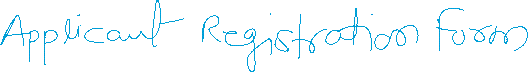 Applicant Registration Form